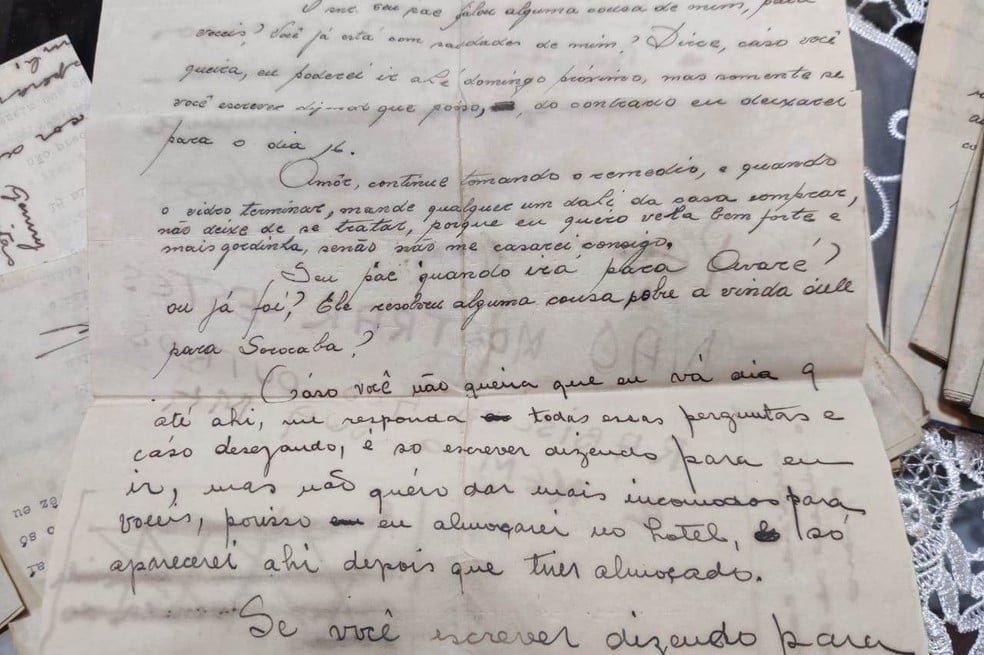 seu pae falou alguma cousa de mim, para
voceis? Você já está com saudades de mim? Dirce, cáso você
queira, eu poderei ir ahi domingo próximo, mas somente se
você escrever que posso, do contrario eu deixarei
para o dia 16.
Amôr, continue tomando o remedio, e quando
o vidro terminar, mande qualquer um dahi da casa comprar,
não deixe de se tratar, porque eu quero vela bem forte e
mais gordinha, senão não me casarei consigo.
Seu pae quando irá para Avaré?
ou já foi? Ele resolveu alguma cousa sobre a vinda delle
para Sorocaba?
Cáso você não queira que eu vá dia 9
até ahi, me responda todas essas perguntas e
cáso desejando, é so escrever dizendo para eu
ir, mas não quéro dar mais incomodos para
voceis, porisso eu almoçarei no hotel, só
aparecerei ahi depois que tiver almoçado.
Se você escrever dizendo para
NÃO MOSTRAR